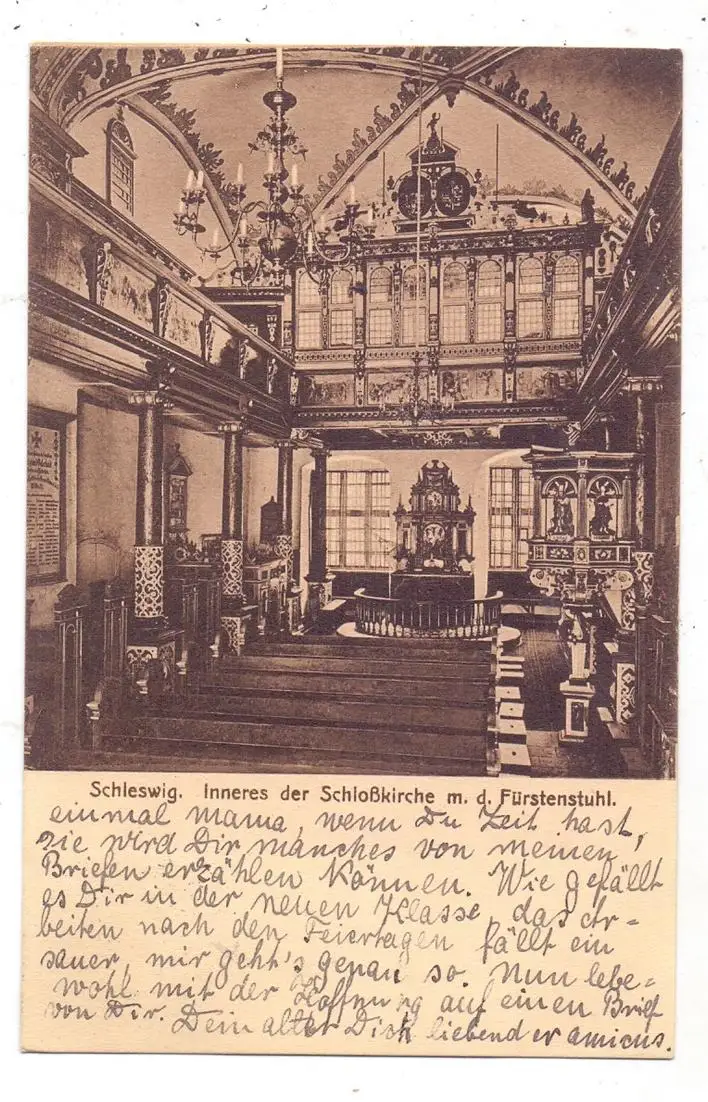 Schleswig. Inneres der Schloßkirche m. d. Fürstenstuhl.
einmal mama, wenn Du Zeit hast,
sie wird Dir manches von meinen
Briefen erzählen können. Wie gefällt
es Dir in der neuen Klasse, das Ar=
beiten nach den Feiertagen fällt ein
sauer, mir geht's genau so. Nun lebe=
wohl mit der Hoffnung auf einen Brief
von Dir. Dein alter Dich liebender amicus.